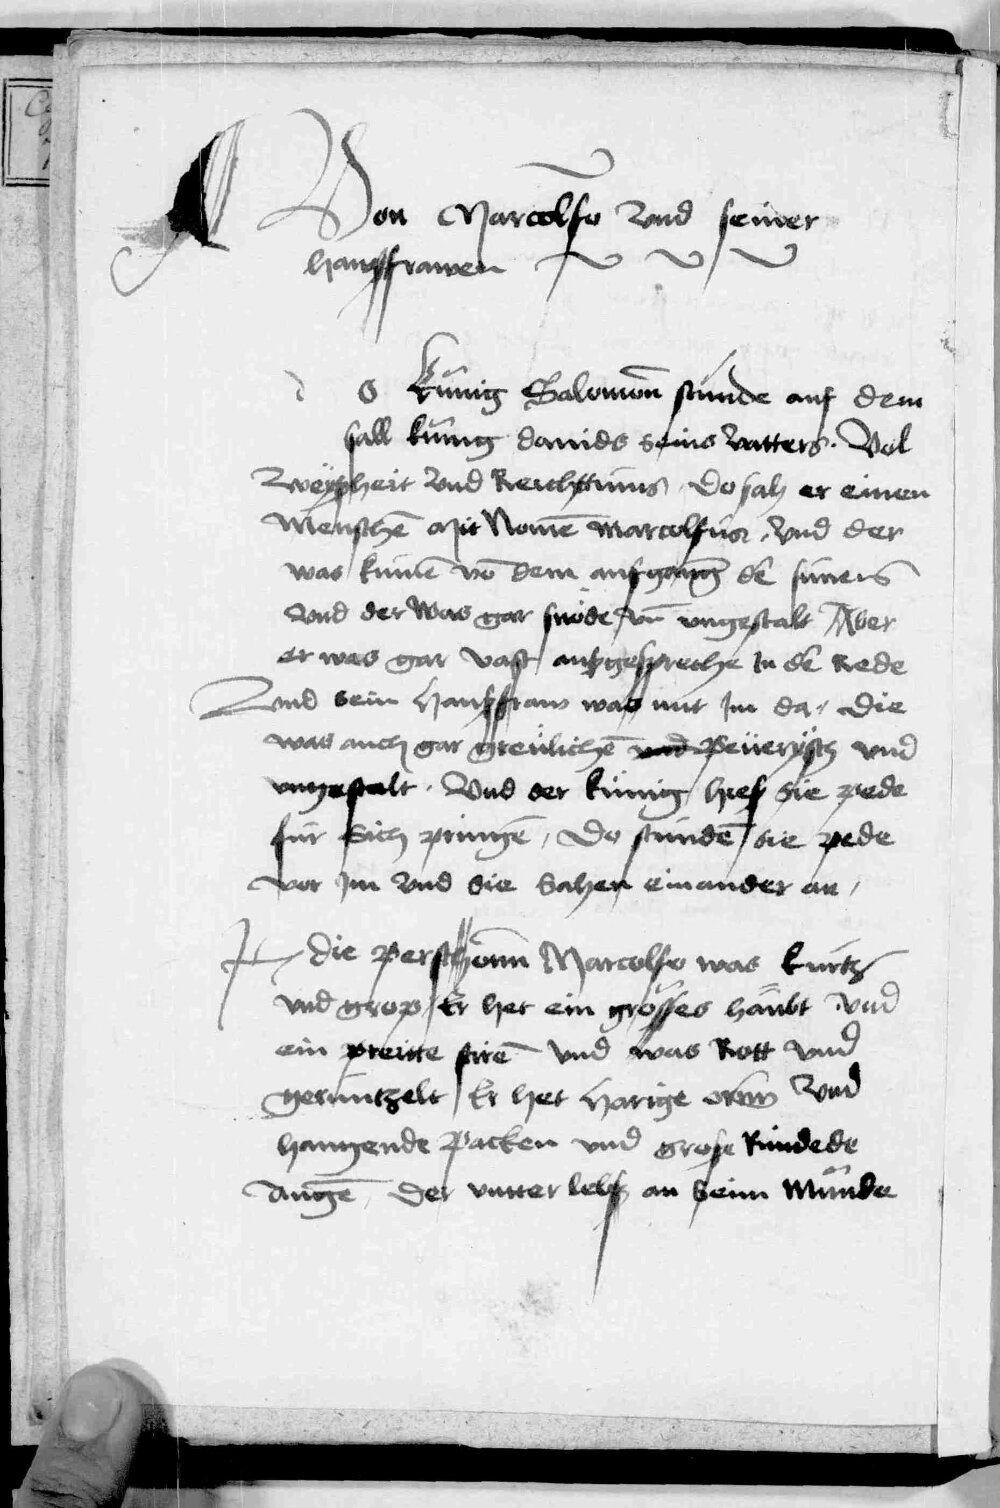 Von Marcolfo Vnd seiner
haußfrawen
d o künig Salomon stunde auf dem
sall künig dauids seins vatters. Vol
Weyßheit Vnd Reichtums, Do sah er einen
Menschē Mit Nomē Marcolfus, Vnd der
was kumē vō dem aufgang dē suners
Vnd der Was gar snöde vn̄ vngestalt Aber
er was gar vast außgespreche In dē Rede
Vnd sein Haußfraw was mit Im da, die
was auch gar greülichē vnd Peüerysch vnd
vngestalt. Vnd der künig hieß sie pede
für sich pringē, Do stundē sie pede
vor Im Vnd sie sahen einander an,
die Perschonn Marcolfo was kurtz
vnd grop, Er het ein grosses haubt vnd
ein preitte stirē vnd was Rott vnd
geruntzelt Er het Harige orn Vnd
hangende Packen vnd grose Rundede
Augē, Der vntter lebß an seim Munde